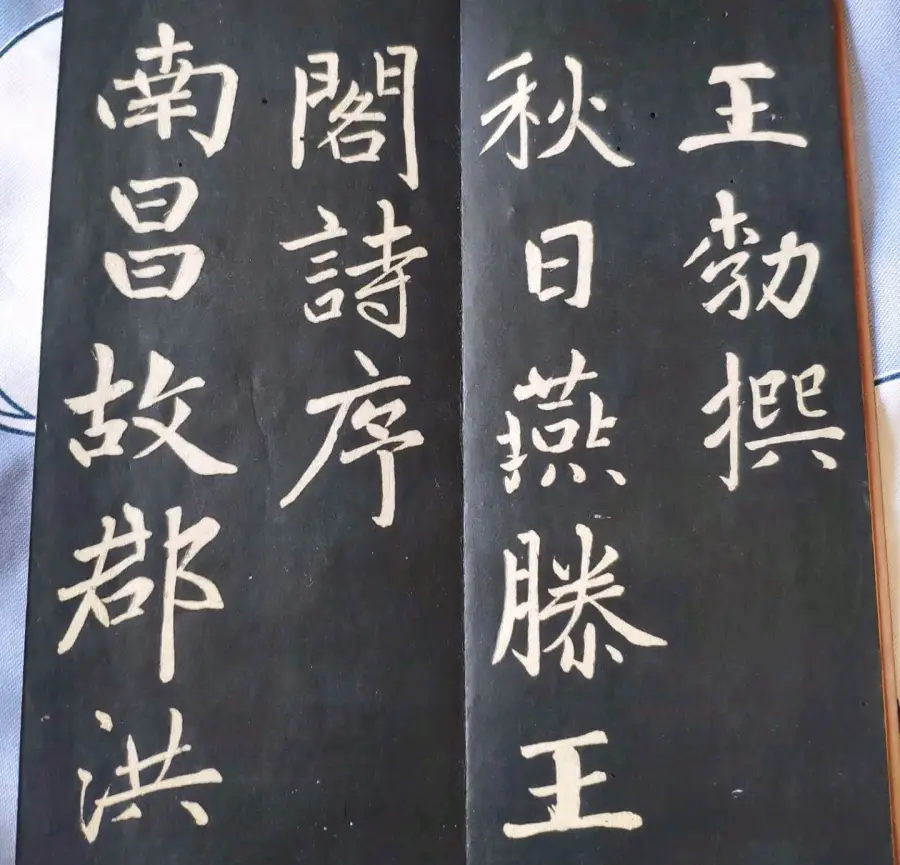 王勃撰
秋日燕滕王
閣詩序
南昌故郡洪